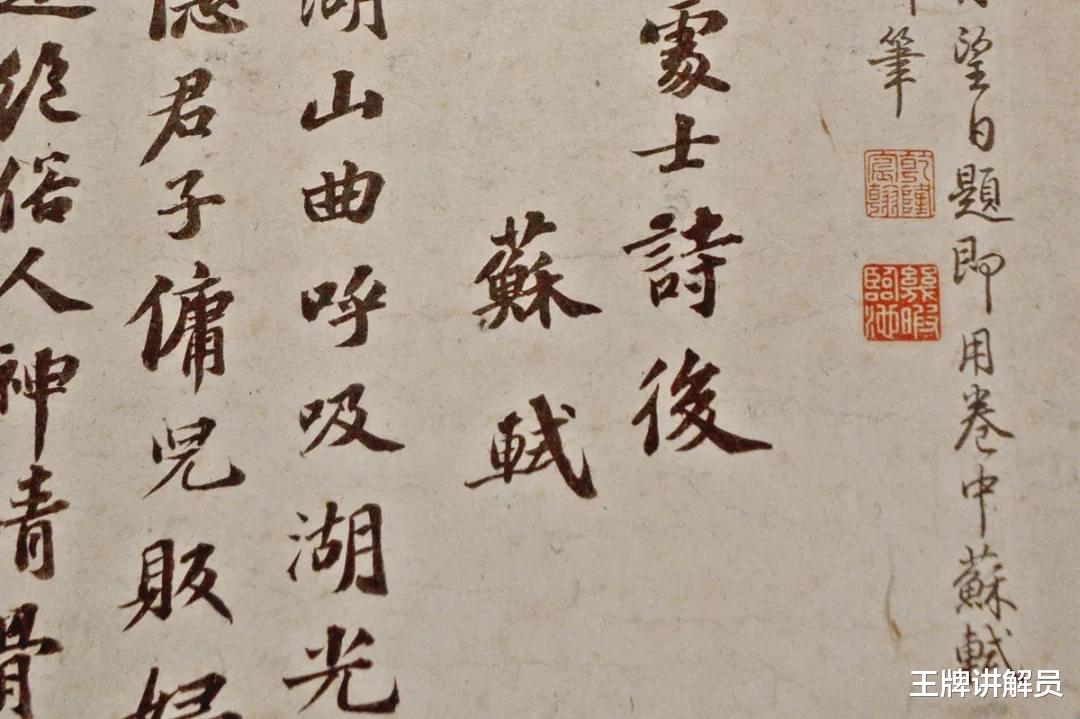 望日題即用卷中蘇軾
筆
乾隆宸翰
幾暇臨池
處士詩後
蘇軾
湖山曲呼吸湖光
隱君子傭兒販婦
絕俗人神清骨
王牌讲解员